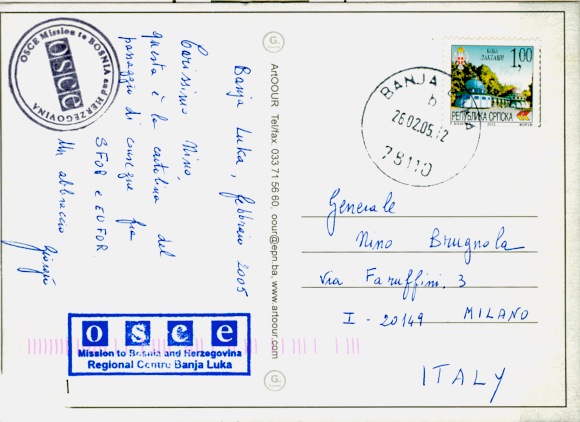 OSCE Mission to BOSNIA and HERZEGOVINA
osce
Banja Luka, febbraio 2005
Carissimo Nino,
questa è la cartolina del
passaggio di consegne fra
SFOR e EUFOR.
Un abbraccio
Giorgio
osce
Mission to Bosnia and Herzegovina
Regional Centre Banja Luka
G.
ArtOOUR Tel/fax. 033 71 56 60, oour@epn.ba, www.artoour.com
G.
БАЊА
ЛАКТАШИ
1,00
РЕПУБЛИКА СРПСКА
BANJA
b
26.02.05.12
78110
Generale
Nino Brugnola
via Faruffini, 3
I - 20149 MILANO
ITALY